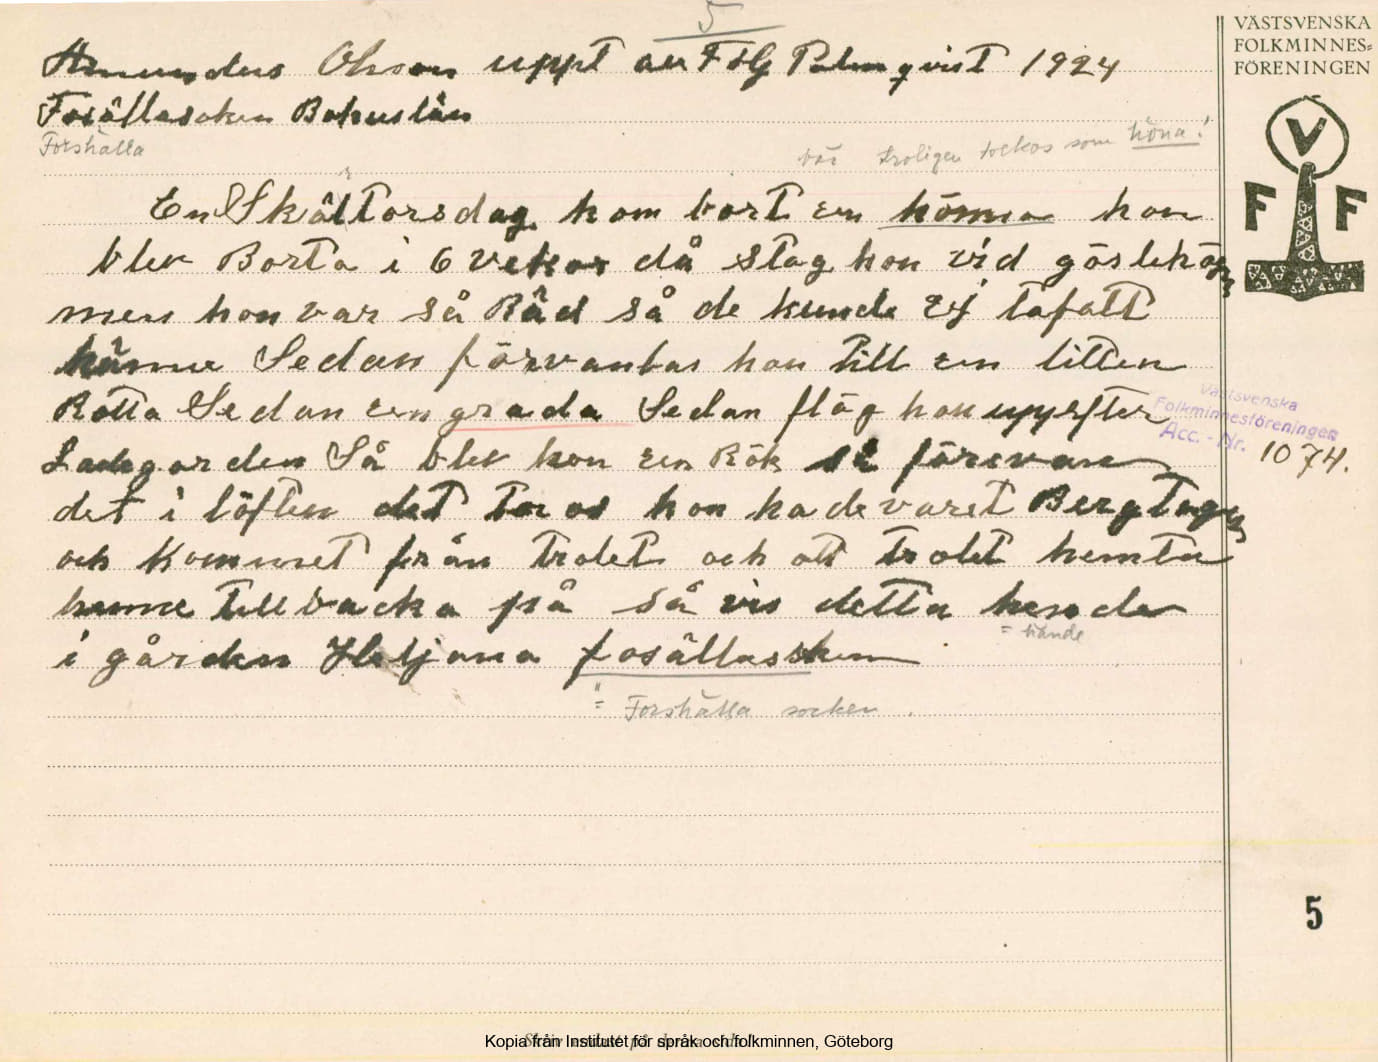 5
VÄSTSVENSKA
FOLKMINNES=
FÖRENINGEN
V
F F
Amundus Olsson uppt av F HG Palmqvist 1924
Fosällasoken Bohuslän
Forshälla
bör troligen tolkas som höna!
En Skältorsdag kom bort en hönna hon
blev Borta i 6 vekor då stog hon vid göslehögen
men hon var så Räd så de kunde Ej tafatt
hänne Sedan förvantas hon till en litten
Rotta Sedan en grada Sedan flög hon uppefter
Ladegorden Så blev hon en Rök så försvan
det i löften det tros hon hade varet Bergtagen
och Kommet från trolet och att trolet hemta
henne tillbacka på så vis detta hende
= hände
i gården Heljana fosällasoken
= Forshälla socken.
Västsvenska
Folkminnesföreningen
Acc. - Nr. 1074.
5
Kopia från Institutet för språk och folkminnen, Göteborg